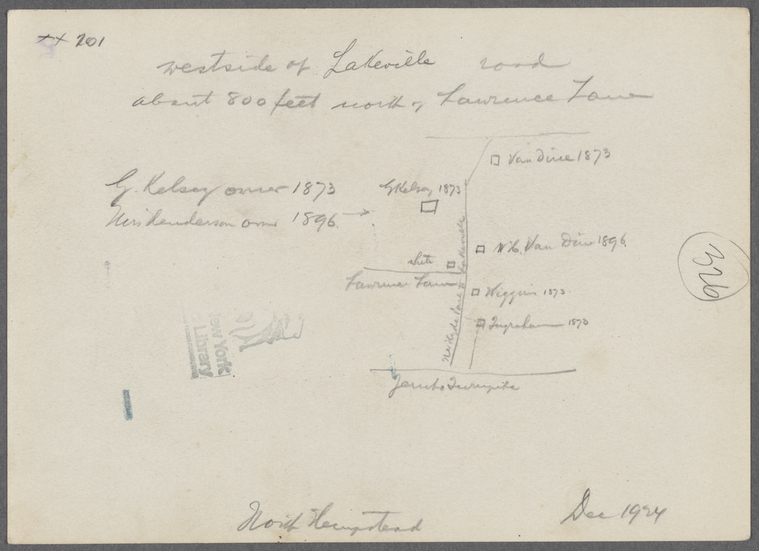 ++ 201
westside of Lakeville road
about 800 feet north of Lawrence Lane
Van Dine 1873
G. Kelsey owner 1873
G Kelsey 1873
1896
Van Dine 1896
326
Lawrence Lane
Wiggins 1873
Ingraham 1873
New York
Library
Jericho Turnpike
North Hempstead
Dec 1924